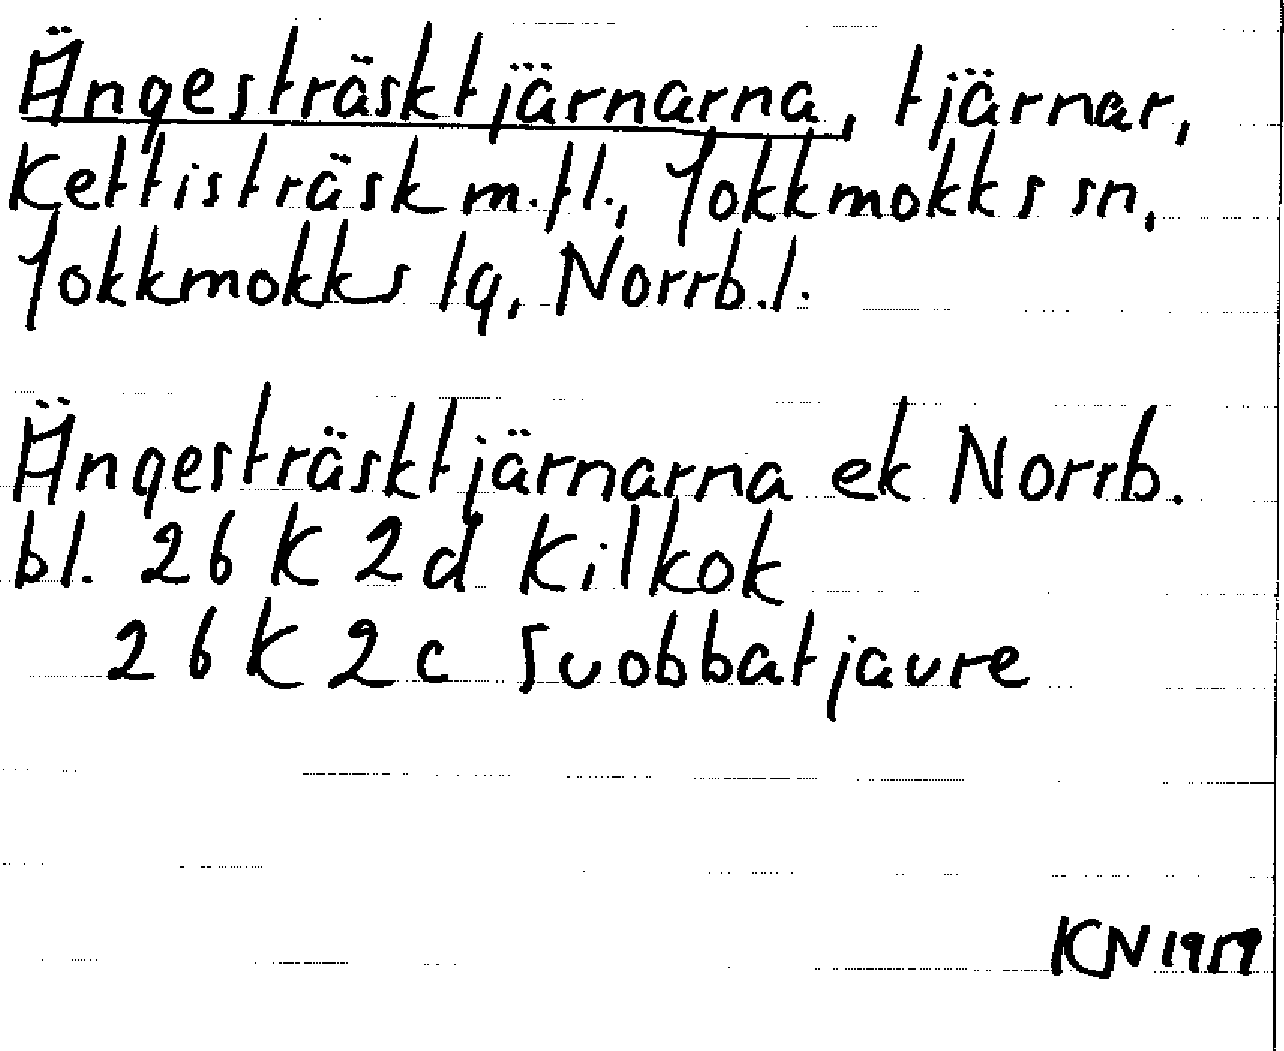 Ängesträsktjärnarna, tjärnar,
Kettisträsk m.fl., Jokkmokks sn,
Jokkmokks lg, Norrb.l.
Ängesträsktjärnarna ek Norrb.
bl. 26 K 2d Kilkok
26 K 2c Suobbatjaure
KN 1959